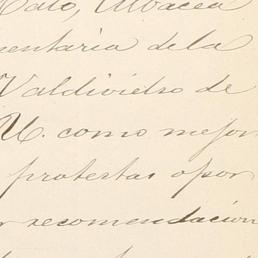 Albacea
mentaria de la
Valdivielso de
U. como mejor
protestas opor
recomendacion